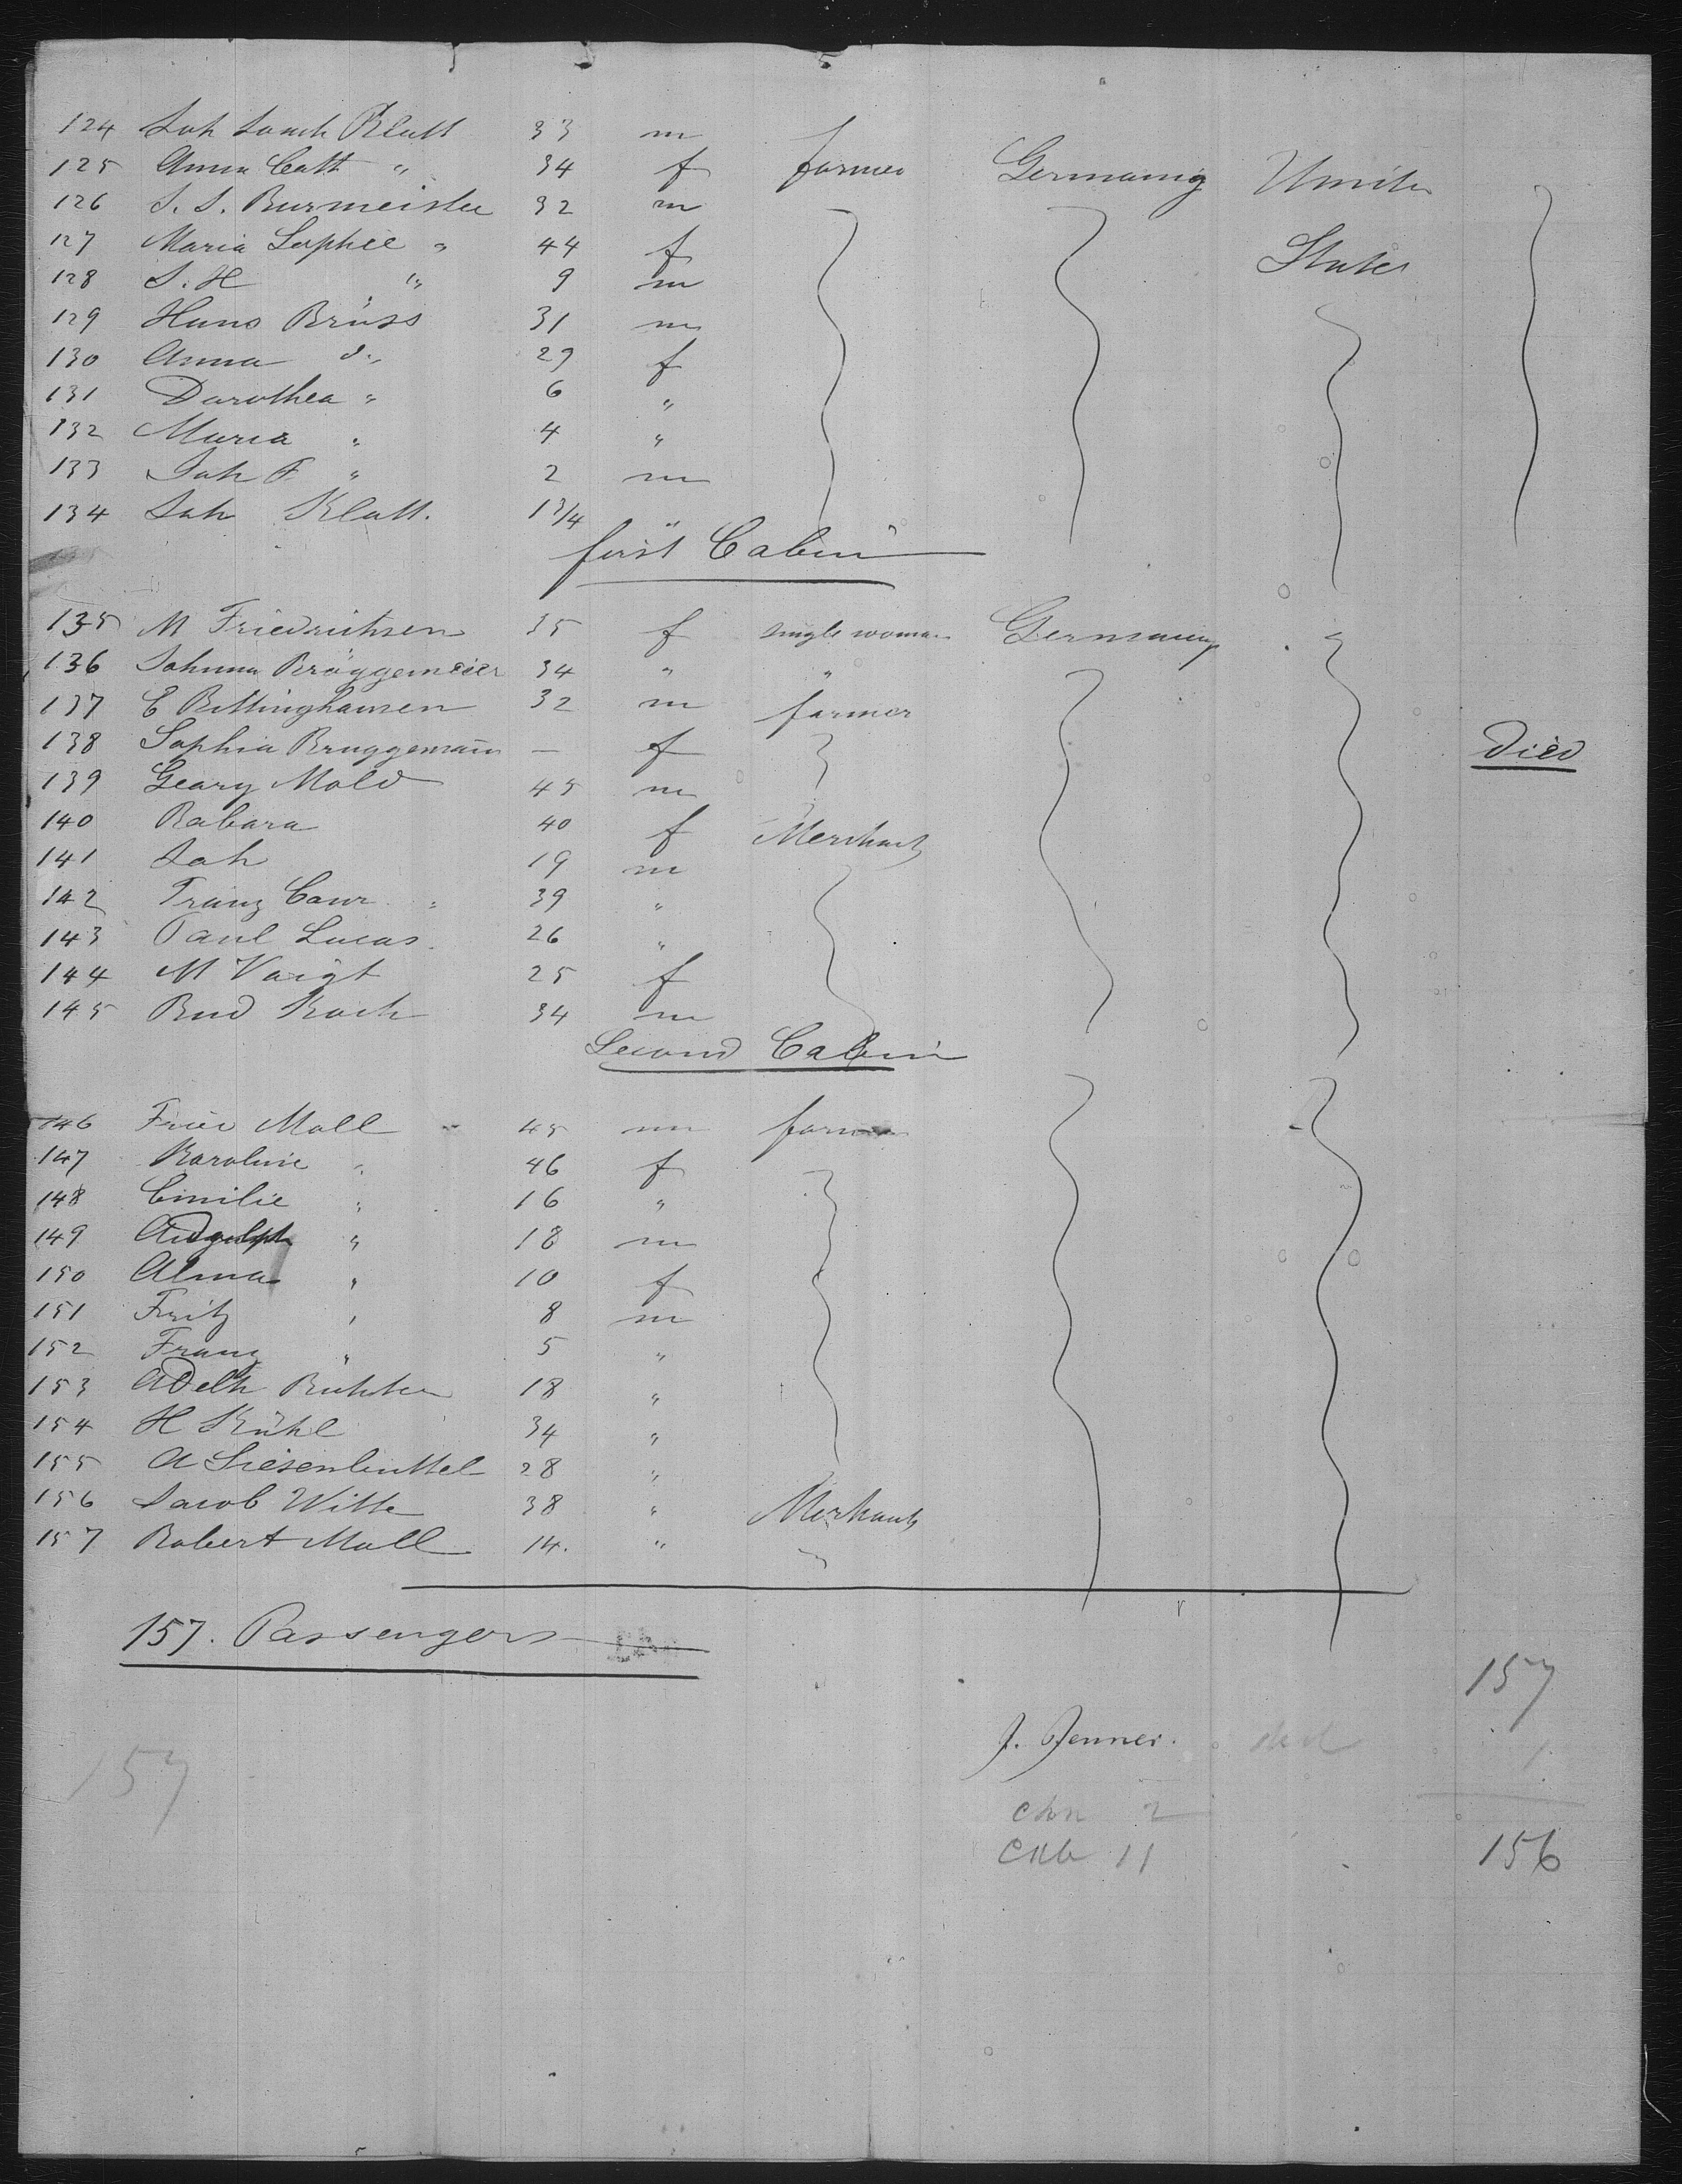 124 Joh Joach Klatt 33 m
125 Anna Cath " 34 f farmer Germany United
126 J. J. Burmeister 32 m
127 Maria Sophie " 44 f States
128 J. H " 9 m
129 Hans Brüss 31 m
130 Anna " 29 f
131 Dorothea " 6 "
132 Maria " 4 "
133 Joh F " 2 m
134 Joh Klatt. 1 3/4 "
first Cabin
135 M Friedrichsen 35 f single woman Germany "
136 Johanna Bröggemeier 34 " "
137 C Bettinghausen 32 m farmer
138 Sophia Bruggemann — f Died
139 Georg Mold 45 m
140 Babara 40 f Merchant
141 Joh 19 m
142 Franz " 39 "
143 Paul Lucas. 26 "
144 M Voigt 25 f
145 Rud Koch 34 m
Second Cabin
146 Fried Moll 45 m farmer
147 Karoline " 46 f
148 Emilie " 16 "
149 " 18 m
150 Alma " 10 f
151 Fritz " 8 m
152 Franz " 5 "
153 Adelh 18 "
154 H Kühl 34 "
155 A 28 "
156 Jacob Witte 38 " Merchant
157 Robert Moll 14. " "
157. Passengers
157
J. Jenner. ded 1
157
chn 2
Cab 11 156